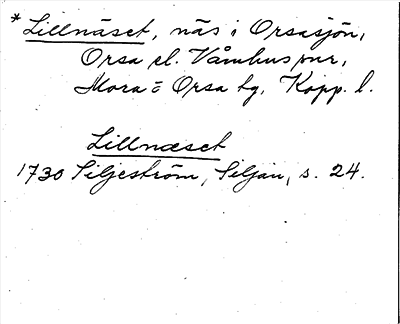 * Lillnäset, näs i Orsasjön,
Orsa el. Våmhus snr,
Mora o Orsa tg, Kopp. l.
Lillnæset
1730 Siljeström, Siljan, s. 24.